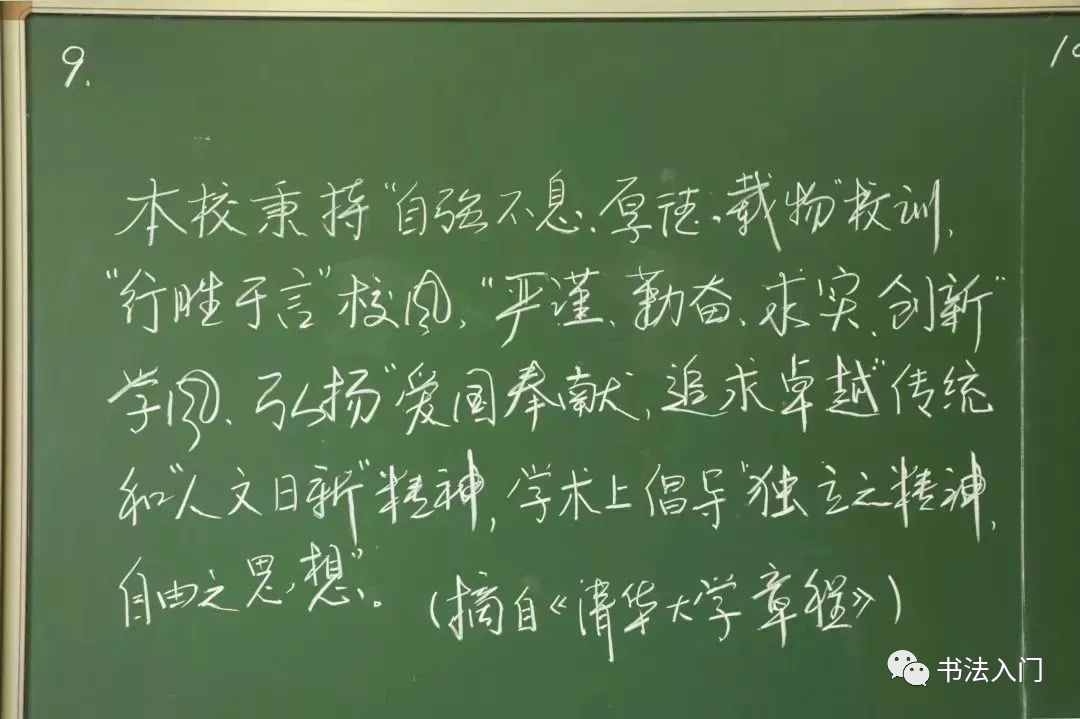 9.
10
本校秉持“自强不息、厚德载物”校训,
“行胜于言”校风,“严谨、勤奋、求实、创新”
学风、弘扬“爱国奉献,追求卓越”传统
和“人文日新”精神,学术上倡导“独立之精神,
自由之思想”。(摘自《清华大学章程》)
书法入门